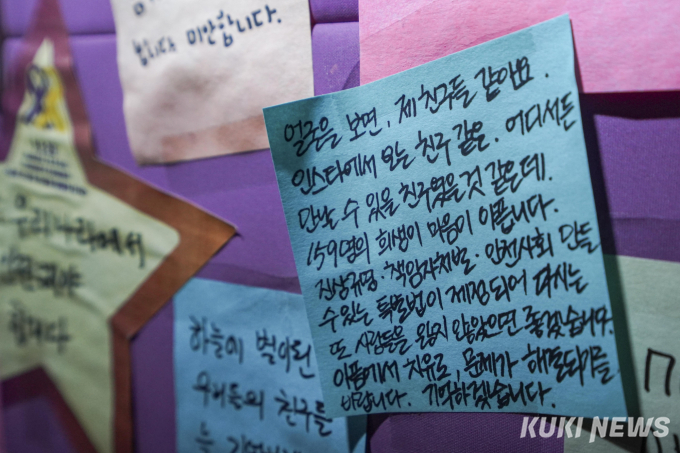 미안합니다.
얼굴을 보면, 제 친구들 같아요.
인스타에서 아는 친구 같은. 어디서든
만날 수 있을 친구였을 것 같은데.
159명의 희생이 마음이 아픕니다.
진상규명·책임자처벌·안전사회 만들
수 있는 특별법이 제정되어 다시는
또 사람들을 잃지 않았으면 좋겠습니다.
아픔에서 치유로, 문제가 해결되기를
바랍니다. 기억하겠습니다.
우리나라에서
합니다
하늘이 별이된
우리들의 친구들
KUKI NEWS